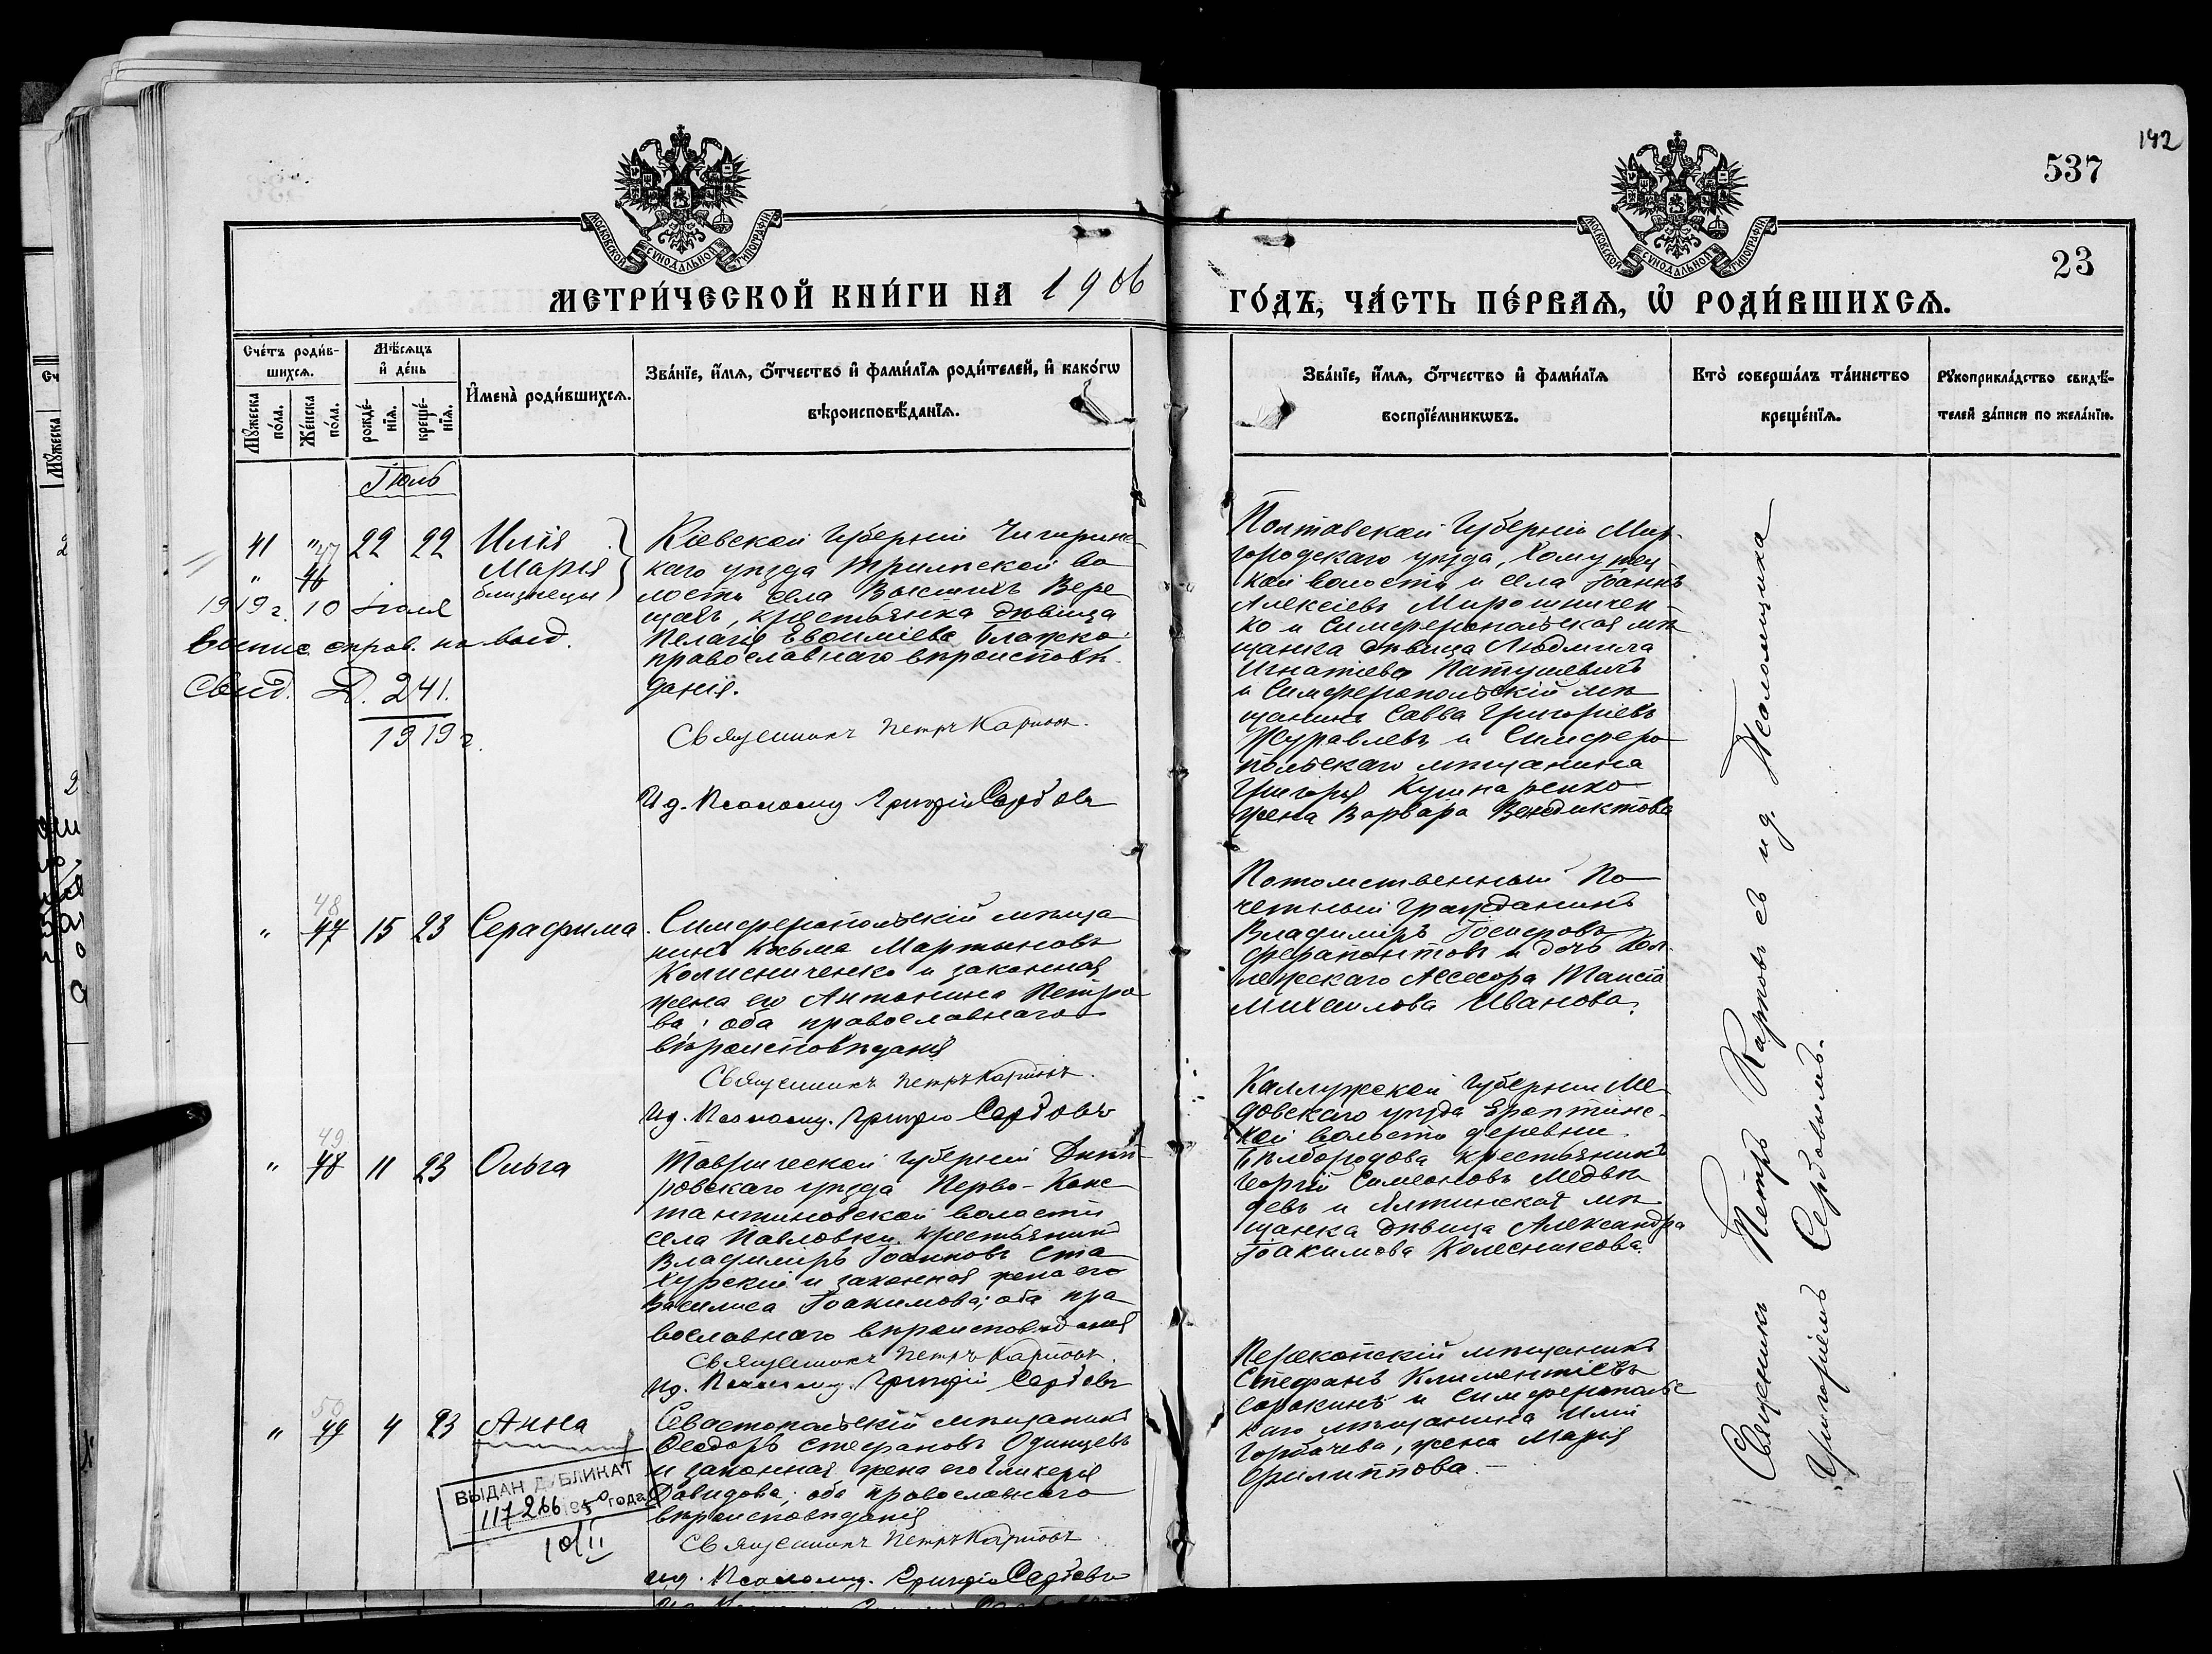 192
537
23
МОСКОВСКОЙ СѴНОДАЛЬНОЙ ТИПОГРАФІИ
МОСКОВСКОЙ СѴНОДАЛЬНОЙ ТИПОГРАФІИ
МЕТРИ́ЧЕСКОЙ КНИ́ГИ НА 1906
ГО́ДЪ, ЧА́СТЬ ПЕ́РВАѦ, Ѡ҆ РОДИ́ВШИХСѦ.
Сче́тъ роди́в-
шихсѧ.
Мꙋ́жеска по́ла.
Же́нска по́ла.
Мѣ́сѧцъ
и҆ де́нь
рожде́-нїѧ.
креще́-нїѧ.
И҆мена̀ роди́вшихсѧ.
Зва́нїе, и҆́мѧ, ѻ҆́тчество и҆ фами́лїѧ роди́телей, и҆ како́гѡ
вѣроисповѣ́данїѧ.
Зва́нїе, и҆́мѧ, ѻ҆́тчество и҆ фами́лїѧ
воспрїе́мникѡвъ.
Кто̀ соверша́лъ та́инство
креще́нїѧ.
Рꙋкоприкла́дство свидѣ́-
телей за́писи по жела́нїю.
Іюль
41 " 47 22 22 Илія
" 46 Марія
близнецы
1919 г. 10 іюля
справ. на выд.
Свид. 241.
1919 г.
Кіевской Губерніи Чигиринс
каго уѣзда Трилѣской во
лости села Вере
щакъ, крестьянка дѣвица
Пелагія Евѳиміева Блажко
православнаго вѣроисповѣ
данія.
Священникъ Петръ Карповъ.
И д. Псаломщ. Григорій Сербовъ
Полтавской Губерніи Мир-
городскаго уѣзда, Хомутец
кой волости и села Іоаннъ
Алексіевъ Мирошничен-
ко и Симферопольская мѣ
щанка дѣвица Людмила
Игнатіева Патушевичъ
и Симферопольскій мѣ
щанинъ Савва Григоріевъ
Журавлевъ и Симферо
польскаго мѣщанина
Григорія
жена Варвара Венедиктова
" 48 47 15 23 Серафима
Симферопольскій мѣща
нинъ Косьма Мартыновъ
Колисниченко и законная
жена его Антонина Петро
ва; оба православнаго
вѣроисповѣданія
Священникъ Петръ Карповъ.
И д. Псаломщ. Григорій Сербовъ
Потомственный По
четный Гражданинъ
Владиміръ
Ферапонтовъ и дочь Кол-
лежскаго Ассесора Таисія
Михаилова Иванова.
" 49 48 11 23 Ольга
Таврической Губерніи Днѣп-
ровскаго уѣзда Перво-Конс
тантиновской волости
села Павловки крестьянинъ
Владиміръ Іоанновъ Ста
хурскій и законная жена его
Василиса Іоакимова; оба пра
вославнаго вѣроисповѣданія
Священникъ Петръ Карповъ.
И д. Псаломщ. Григорій Сербовъ
Калужской Губерніи Ме
довскаго уѣзда
кой волости деревни
Бѣлобородова крестьянинъ
Георгій Симеоновъ Медвѣ
девъ и Ялтинская мѣ
щанка дѣвица Александра
Іоакимова Колесникова.
" 50 49 4 23 Анна
Севастопольскій мѣщанинъ
Ѳеодоръ Стефановъ Одинцевъ
и законная жена его Гликерія
Давидова; оба православнаго
вѣроисповѣданія
Священникъ Петръ Карповъ
И д. Псаломщ. Григорій Сербовъ
ВЫДАН ДУБЛИКАТ
117266 1950 года
10/II
Перекопскій мѣщанинъ
Стефанъ Климентіевъ
Сорокинъ и Симферопольс
каго мѣщанина Иліи
Горбачева, жена Марія
Филиппова.
Священникъ Петръ Карповъ съ и д. Псаломщика
Григоріемъ Сербовымъ.